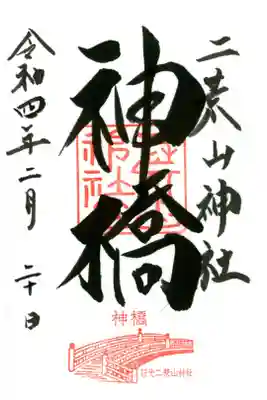 二荒山神社
神橋
令和四年二月
二十日
神橋
日光二荒山神社